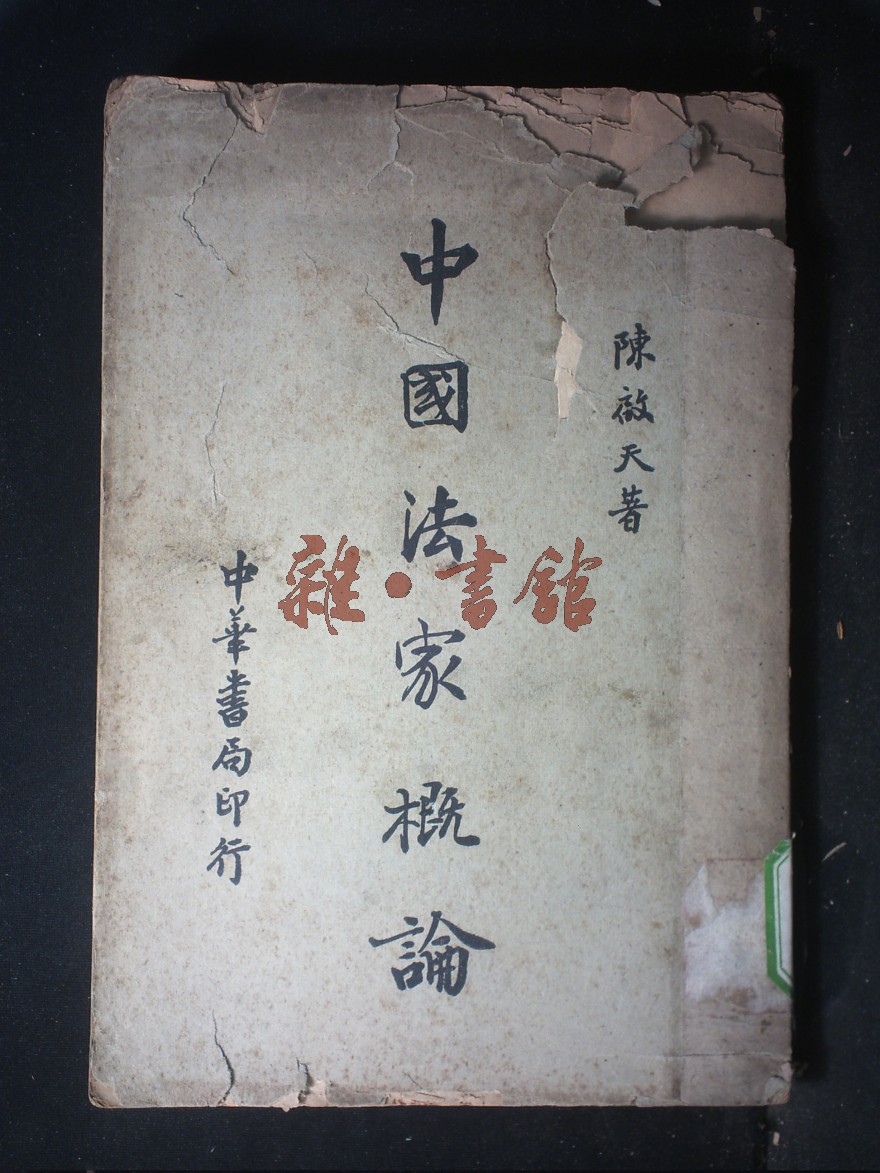 陳啟天著
中國法家概論
中華書局印行
雜·書館